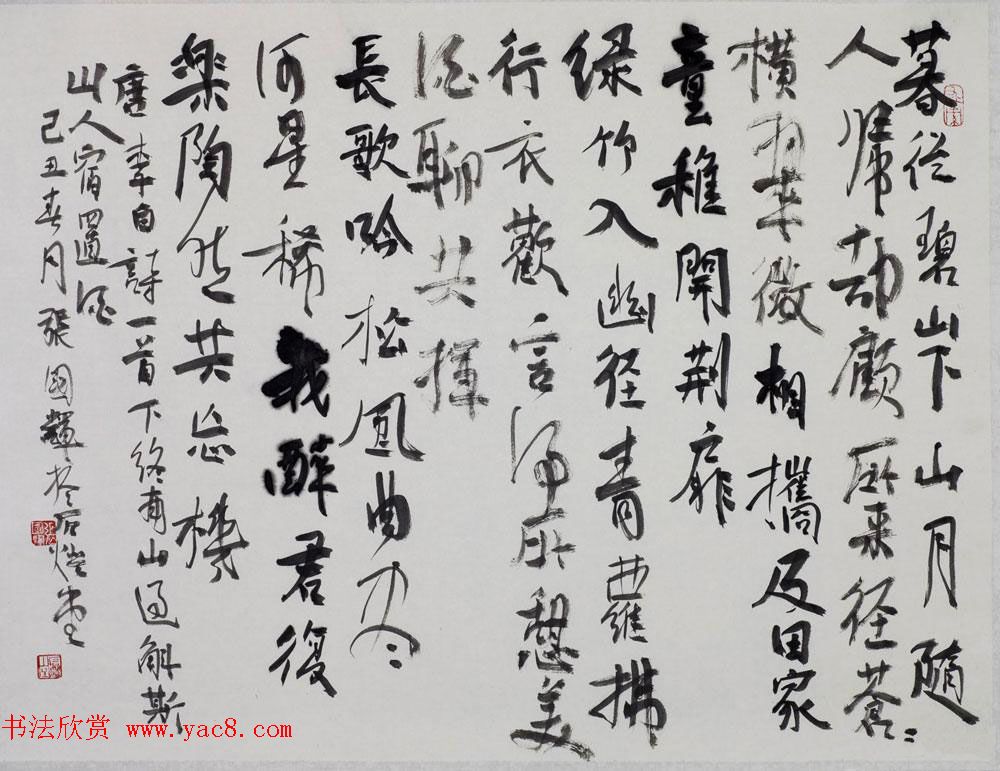 暮從碧山下山月隨
人歸却顧所来径蒼々
橫翠微相攜及田家
童稚開荆扉
绿竹入幽径青蘿拂
行衣歡言得所憩美
酒聊共揮
長歌吟松風曲尽
河星稀我醉君復
樂陶然共忘機
唐李白詩一首下終南山過斛斯
山人宿置酒
己丑春月張國輝於石堂
书法欣赏 www.yac8.com